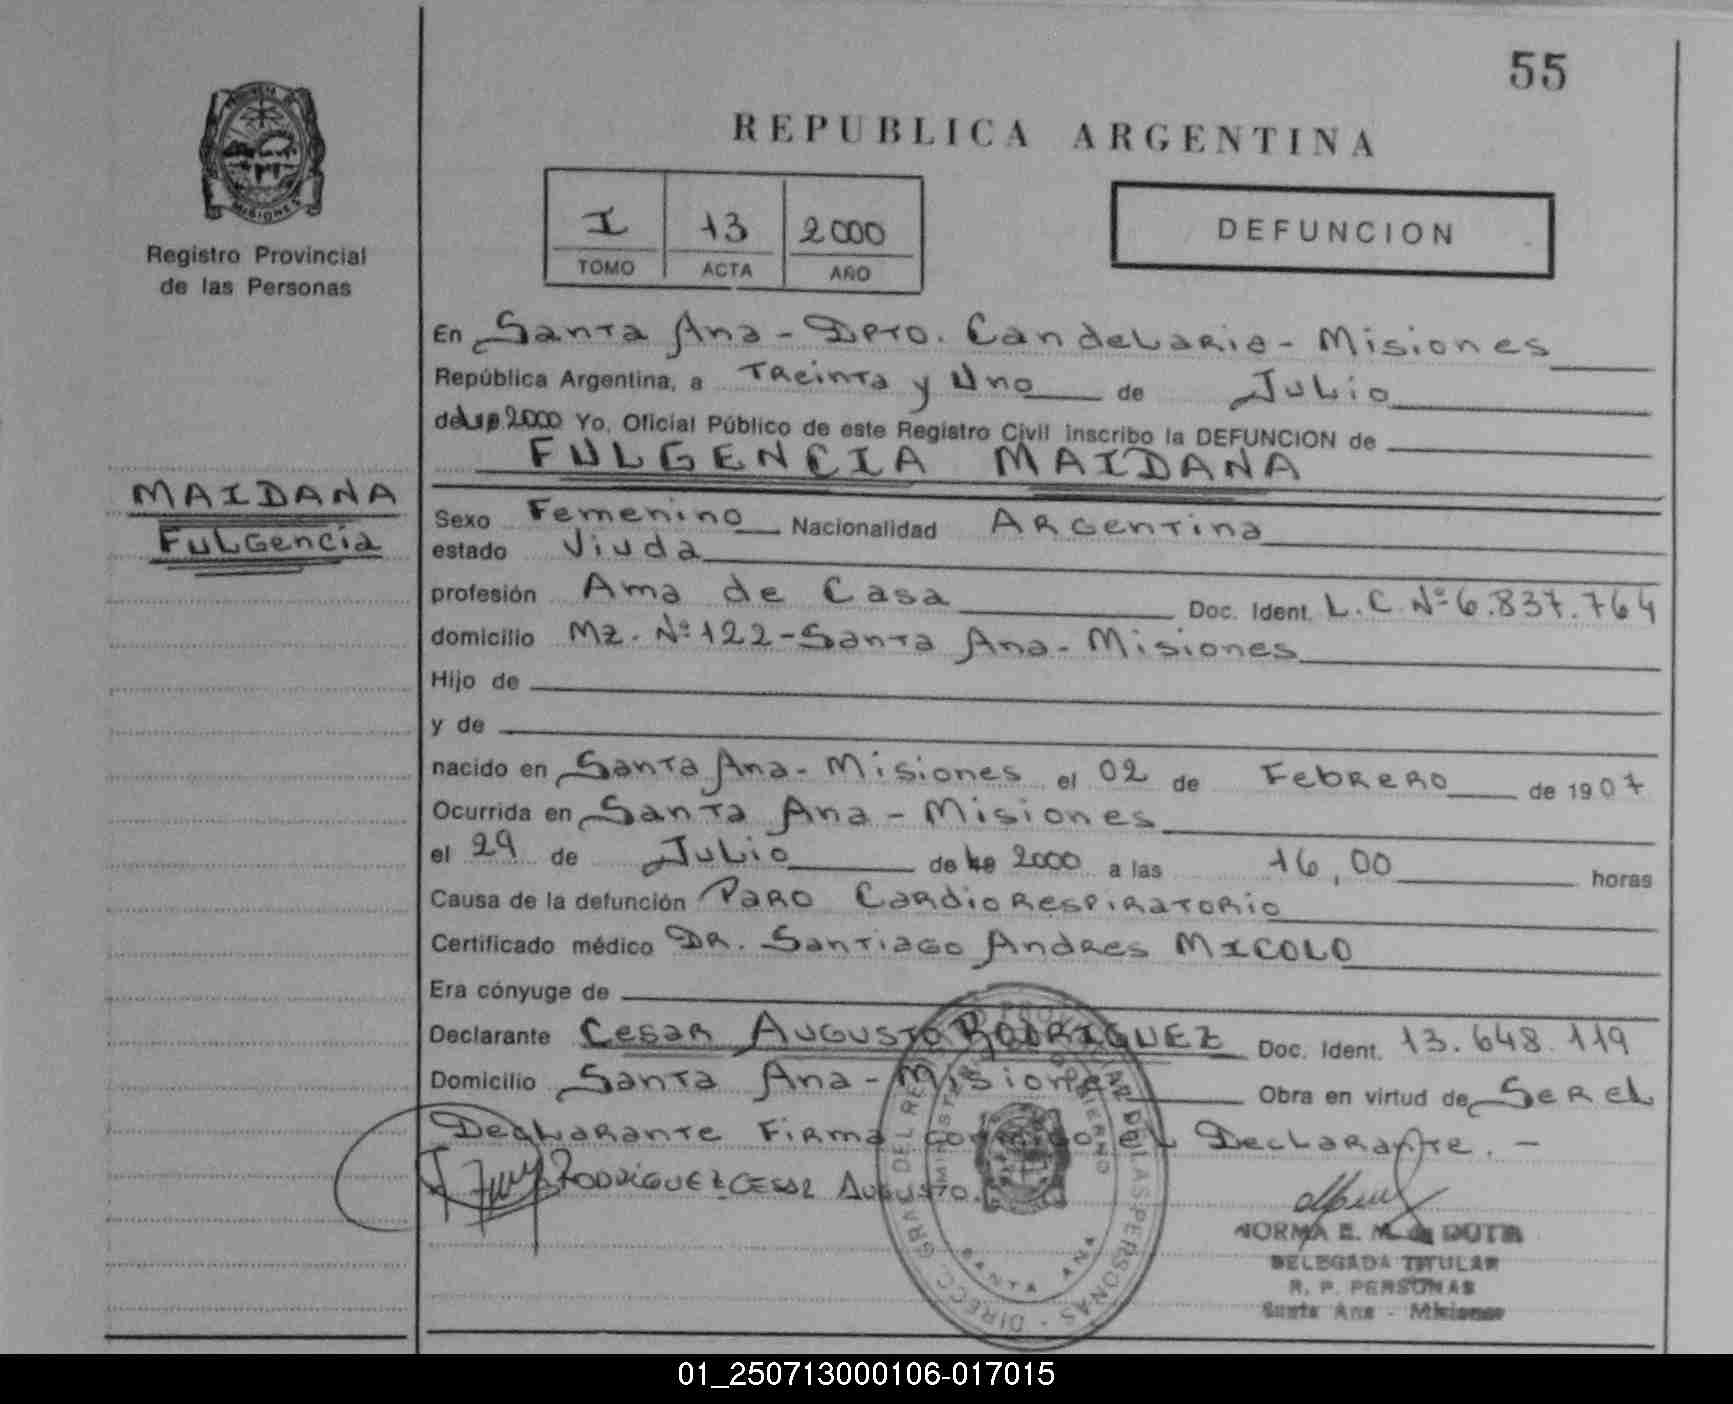 55
REPUBLICA ARGENTINA
PROVINCIA DE
MISIONES
Registro Provincial
de las Personas
I 13 2000
TOMO ACTA AÑO
DEFUNCION
En Santa Ana - Dpto. Candelaria - Misiones
República Argentina, a Treinta y Uno de Julio
del 2000 Yo, Oficial Público de este Registro Civil inscribo la DEFUNCION de
FULGENCIA MAIDANA
MAIDANA
Fulgencia
Sexo Femenino Nacionalidad Argentina
estado Viuda
profesión Ama de Casa Doc. Ident. L.C.Nº 6.837.764
domicilio Mz. Nº 122 - Santa Ana - Misiones
Hijo de
y de
nacido en Santa Ana - Misiones el 02 de Febrero de 1907
Ocurrida en Santa Ana - Misiones
el 29 de Julio de 2000 a las 16,00 horas
Causa de la defunción Paro Cardiorespiratorio
Certificado médico Dr. Santiago Andres MICOLO
Era cónyuge de
Declarante Cesar Augusto RODRIGUEZ Doc. Ident. 13.648.119
Domicilio Santa Ana - Misiones Obra en virtud de Ser el
Declarante Firma conmigo el Declarante. -
RODRIGUEZ CESAR AUGUSTO.
DIRECC. GRAL DEL REG. PROV. DE LAS PERSONAS
MINISTERIO DE GOBIERNO
SANTA ANA
NORMA E. M. de
DELEGADA TITULAR
R. P. PERSONAS
Santa Ana - Misiones
01_250713000106-017015